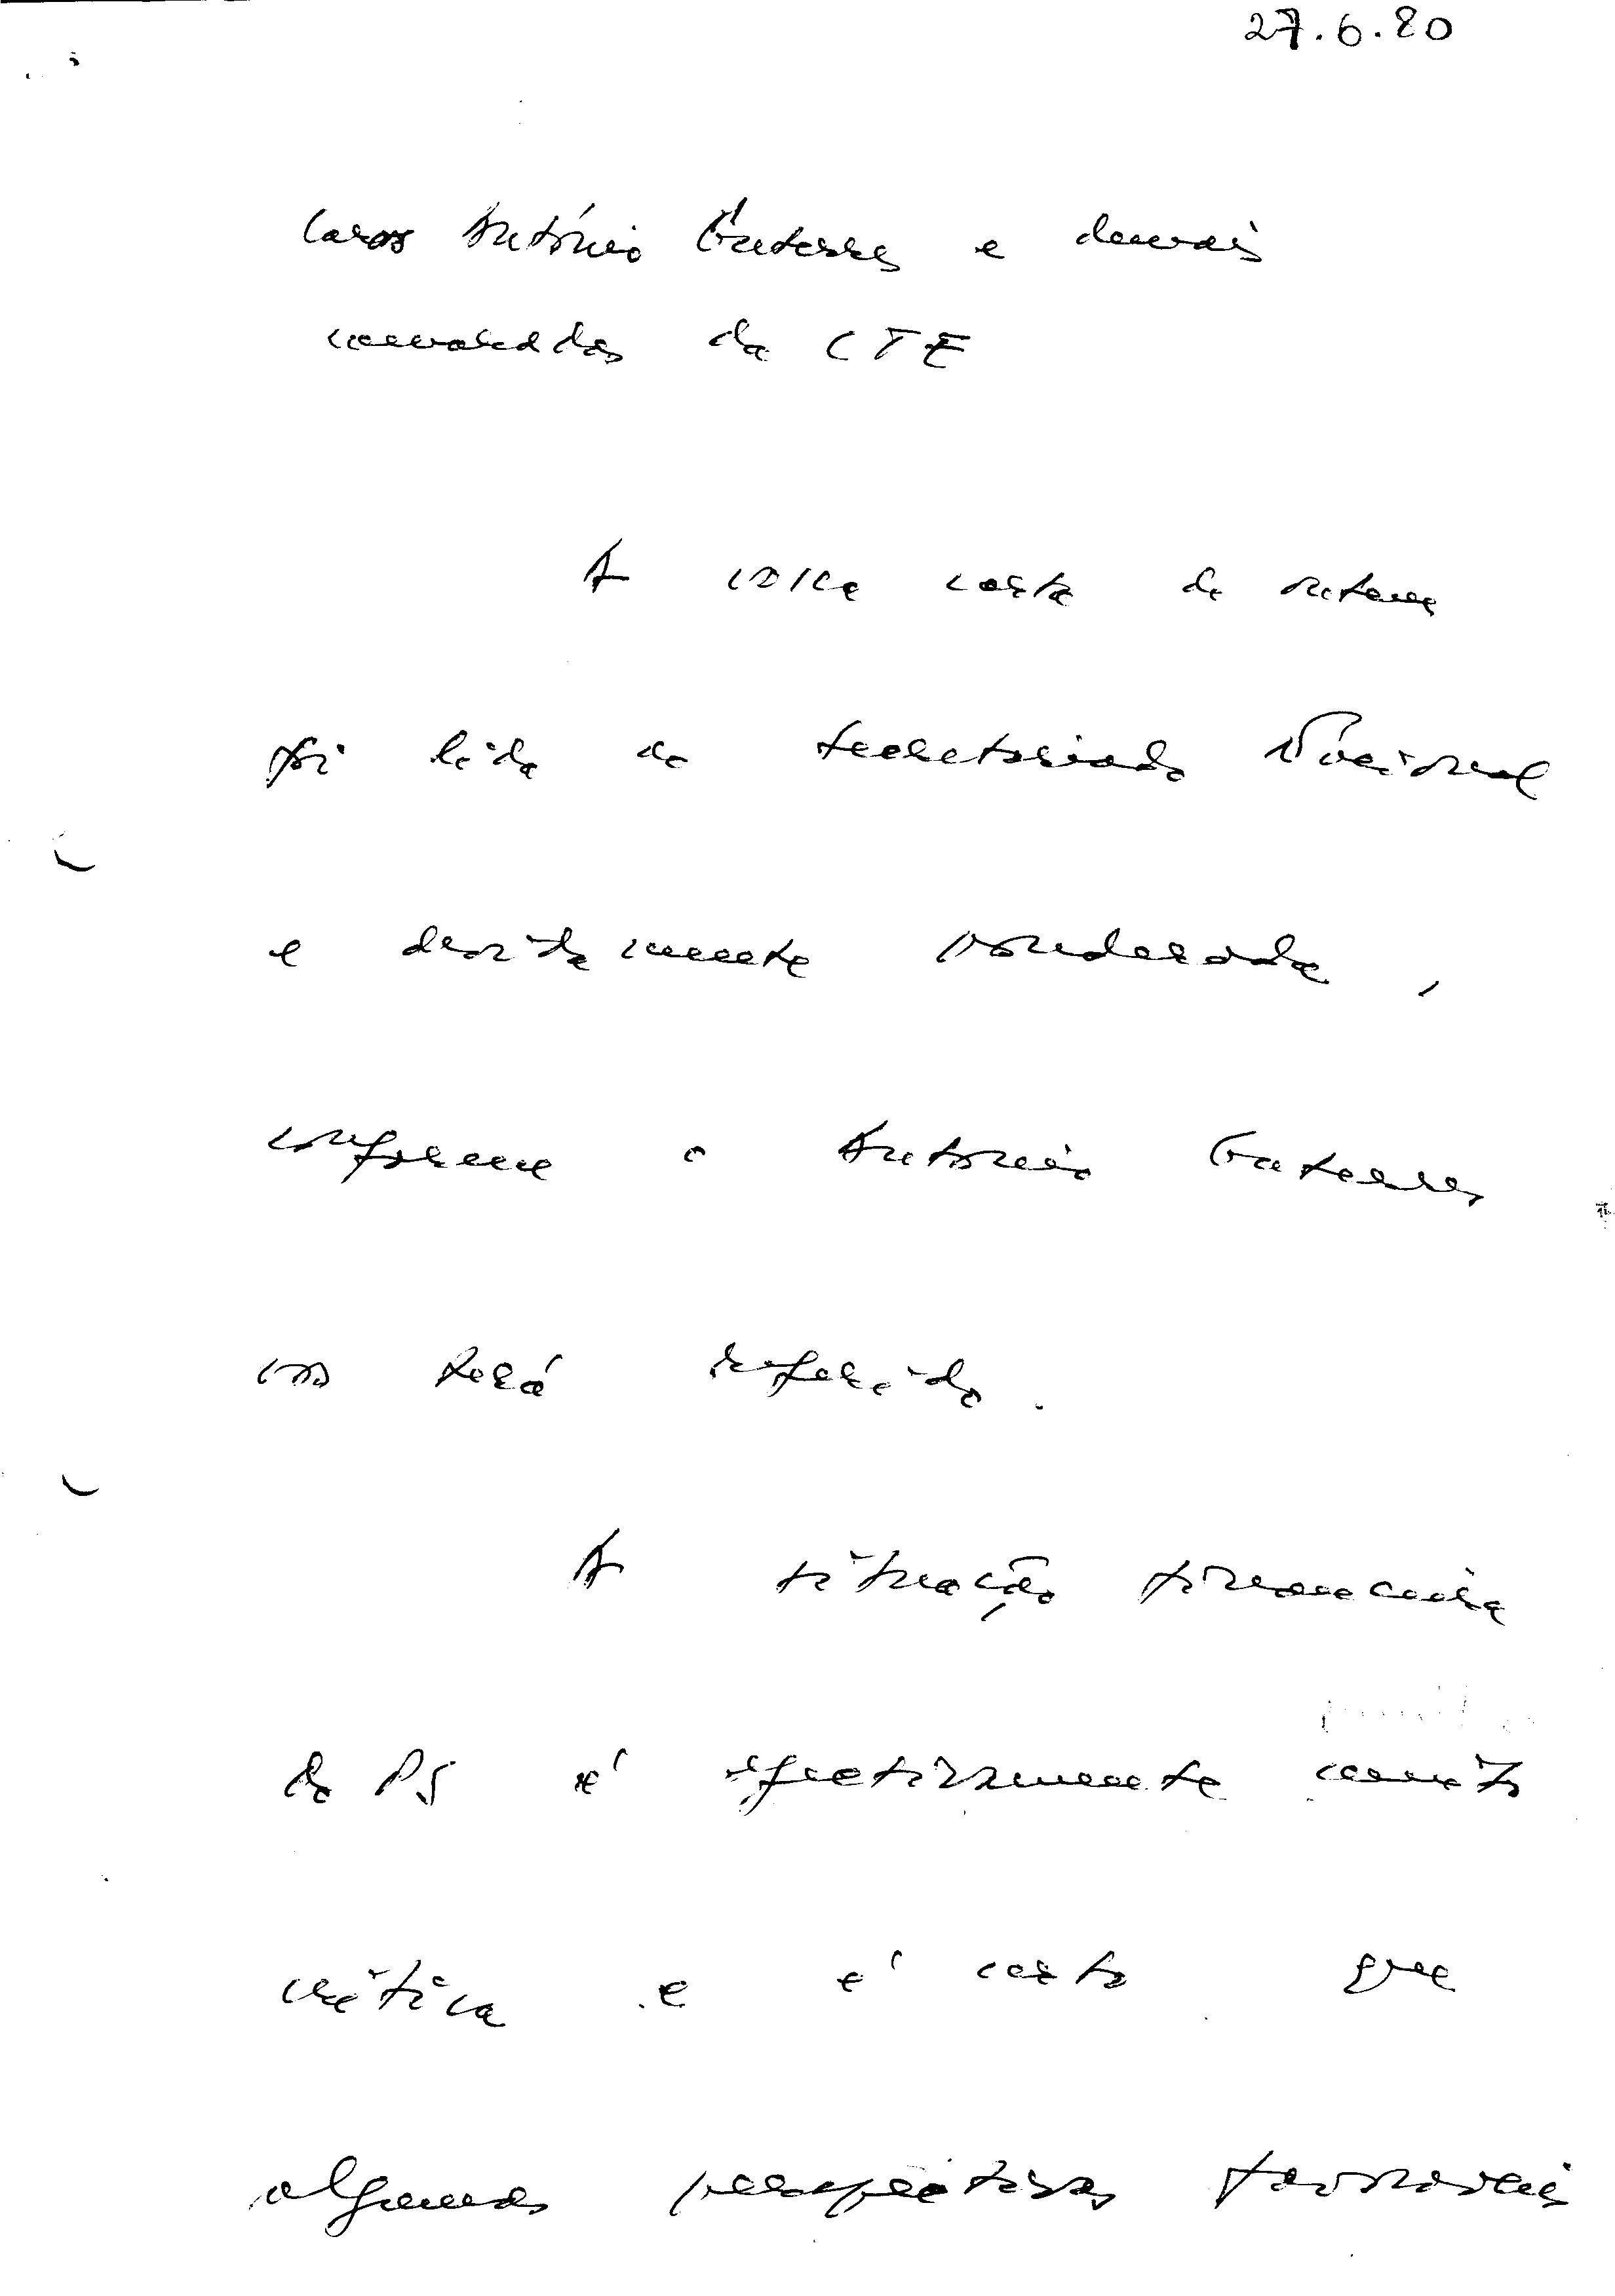 27.6.80
Caros António Guterres e demais
camaradas da CTE
A vossa carta de ontem
foi lida ao Secretariado Nacional
e devidamente ponderada,
conforme o António Guterres
vos terá referido.
A situação financeira
do PS é efectivamente muito
crítica e é certo que
algumas perspectivas favoráveis